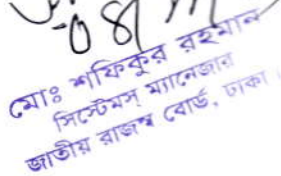 মোঃ শফিকুর রহমান
সিস্টেমস্ ম্যানেজার
জাতীয় রাজস্ব বোর্ড, ঢাকা।